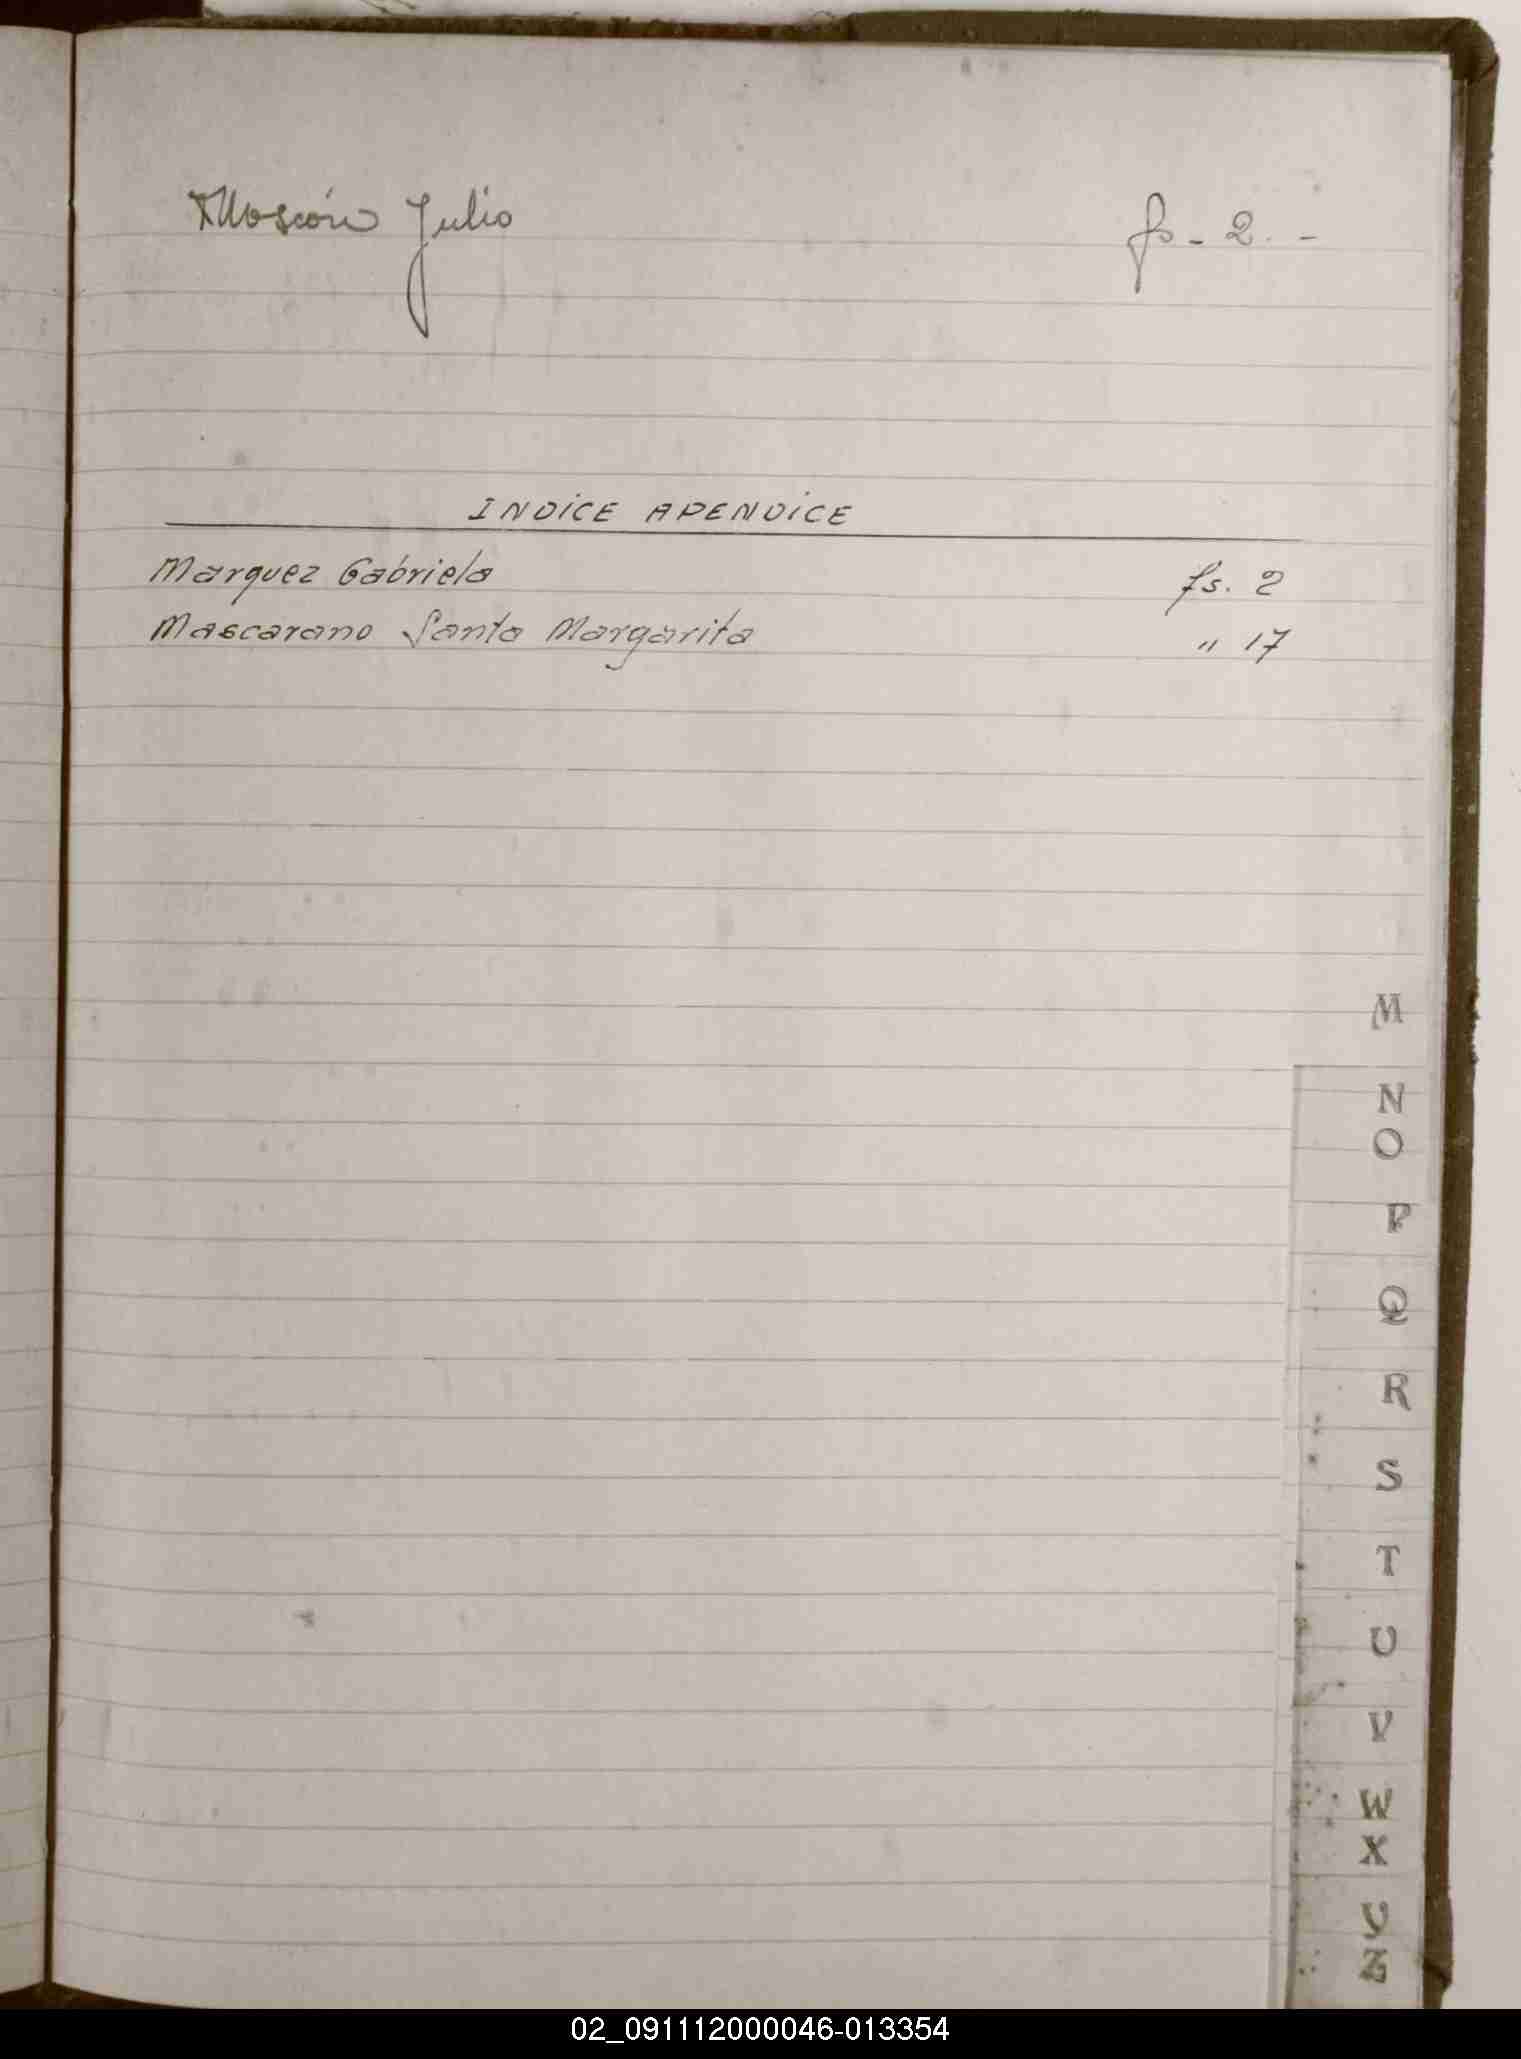 Moscón Julio fs - 2. -
INDICE APENDICE
Marquez Gabriela fs. 2
Mascarano Santa Margarita " 17
M
N
O
P
Q
R
S
T
U
V
W
X
Y
Z
02_091112000046-013354